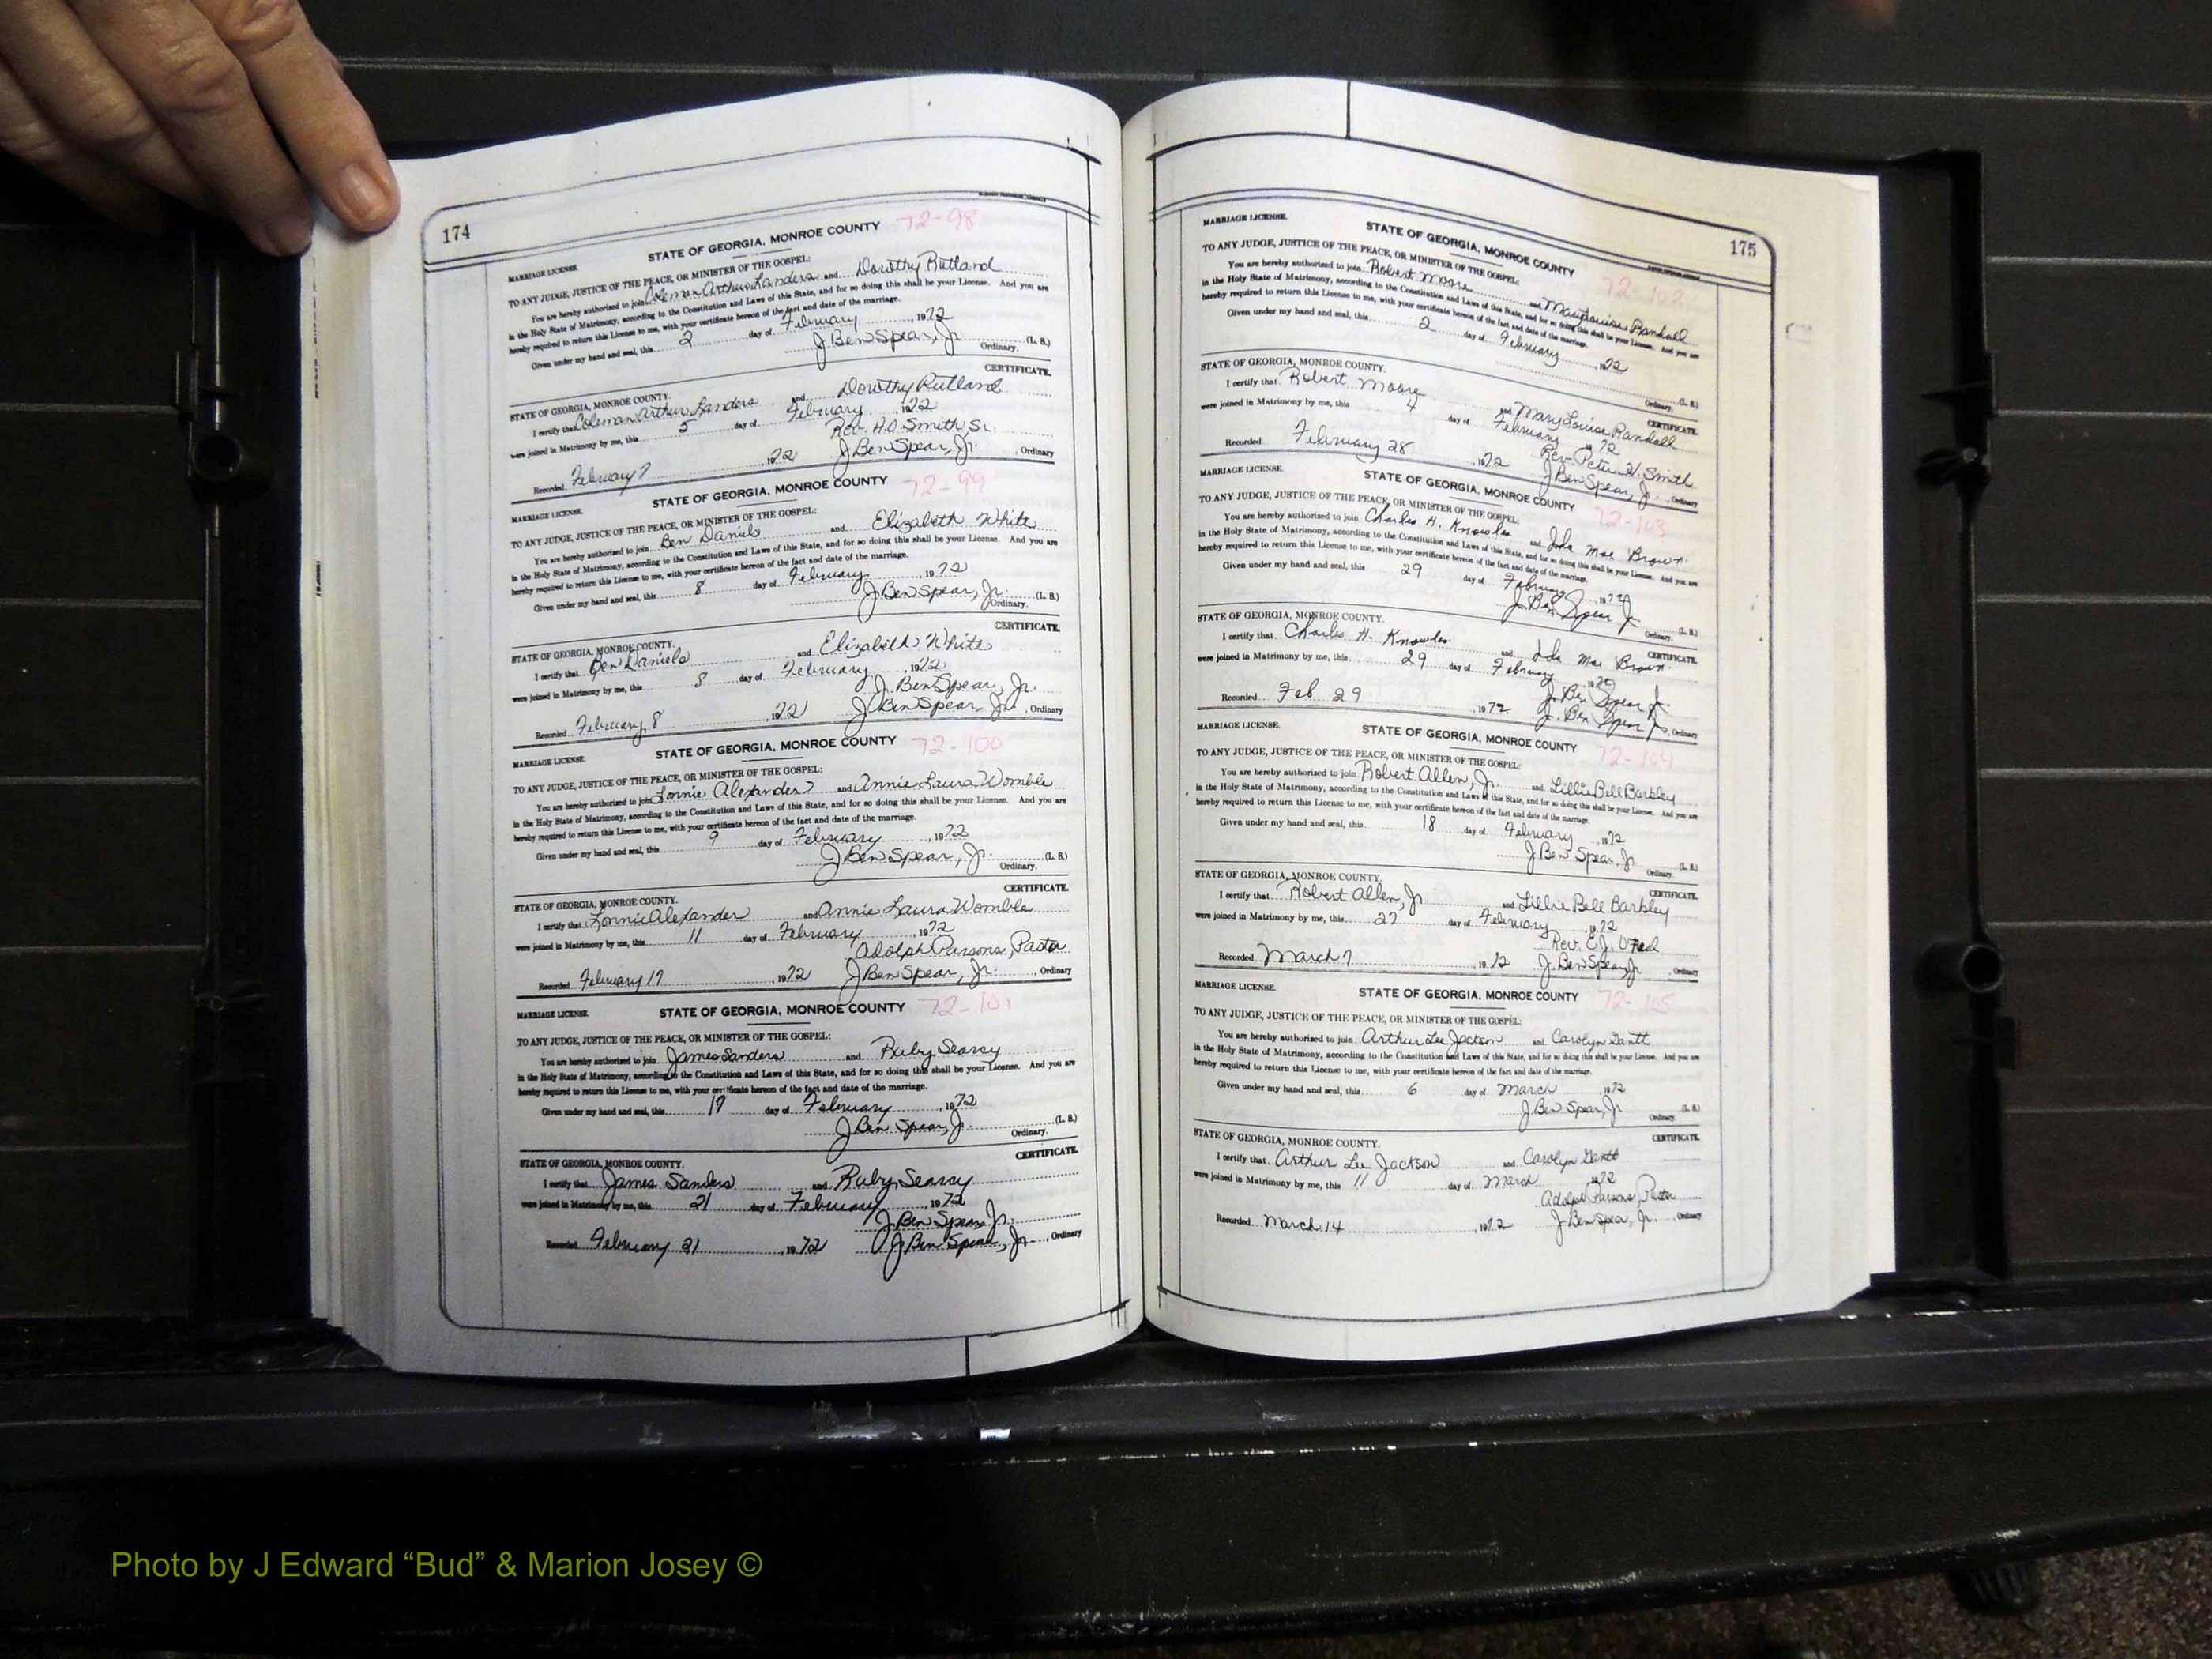 174
72-98
STATE OF GEORGIA, MONROE COUNTY
MARRIAGE LICENSE.
TO ANY JUDGE, JUSTICE OF THE PEACE, OR MINISTER OF THE GOSPEL:
You are hereby authorized to join Coleman Arthur Landers and Dorothy Rutland
in the Holy State of Matrimony, according to the Constitution and Laws of this State, and for so doing this shall be your License. And you are
hereby required to return this License to me, with your certificate hereon of the fact and date of the marriage.
Given under my hand and seal, this 2 day of February, 1972
J Ben Spear, Jr. (L. S.)
Ordinary.
CERTIFICATE.
STATE OF GEORGIA, MONROE COUNTY.
I certify that Coleman Arthur Landers and Dorothy Rutland
were joined in Matrimony by me, this 5 day of February, 1972
Rev. H.O. Smith, Sr.
Recorded February 7, 1972 J Ben Spear, Jr., Ordinary
72-99
STATE OF GEORGIA, MONROE COUNTY
MARRIAGE LICENSE.
TO ANY JUDGE, JUSTICE OF THE PEACE, OR MINISTER OF THE GOSPEL:
You are hereby authorized to join Ben Daniels and Elizabeth White
in the Holy State of Matrimony, according to the Constitution and Laws of this State, and for so doing this shall be your License. And you are
hereby required to return this License to me, with your certificate hereon of the fact and date of the marriage.
Given under my hand and seal, this 8 day of February, 1972
J Ben Spear, Jr. (L. S.)
Ordinary.
CERTIFICATE.
STATE OF GEORGIA, MONROE COUNTY.
I certify that Ben Daniels and Elizabeth White
were joined in Matrimony by me, this 8 day of February, 1972
J. Ben Spear, Jr.
Recorded February 8, 1972 J Ben Spear, Jr., Ordinary
72-100
STATE OF GEORGIA, MONROE COUNTY
MARRIAGE LICENSE.
TO ANY JUDGE, JUSTICE OF THE PEACE, OR MINISTER OF THE GOSPEL:
You are hereby authorized to join Lonnie Alexander and Annie Laura Womble
in the Holy State of Matrimony, according to the Constitution and Laws of this State, and for so doing this shall be your License. And you are
hereby required to return this License to me, with your certificate hereon of the fact and date of the marriage.
Given under my hand and seal, this 9 day of February, 1972
J Ben Spear, Jr. (L. S.)
Ordinary.
CERTIFICATE.
STATE OF GEORGIA, MONROE COUNTY.
I certify that Lonnie Alexander and Annie Laura Womble
were joined in Matrimony by me, this 11 day of February, 1972
Adolph Parsons, Pastor
Recorded February 17, 1972 J Ben Spear, Jr., Ordinary
72-101
STATE OF GEORGIA, MONROE COUNTY
MARRIAGE LICENSE.
TO ANY JUDGE, JUSTICE OF THE PEACE, OR MINISTER OF THE GOSPEL:
You are hereby authorized to join James Sanders and Ruby Searcy
in the Holy State of Matrimony, according to the Constitution and Laws of this State, and for so doing this shall be your License. And you are
hereby required to return this License to me, with your certificate hereon of the fact and date of the marriage.
Given under my hand and seal, this 17 day of February, 1972
J Ben Spear, Jr. (L. S.)
Ordinary.
CERTIFICATE.
STATE OF GEORGIA, MONROE COUNTY.
I certify that James Sanders and Ruby Searcy
were joined in Matrimony by me, this 21 day of February, 1972
J Ben Spear, Jr.
Recorded February 21, 1972 J Ben Spear, Jr., Ordinary
175
MARRIAGE LICENSE.
STATE OF GEORGIA, MONROE COUNTY
72-102
TO ANY JUDGE, JUSTICE OF THE PEACE, OR MINISTER OF THE GOSPEL:
You are hereby authorized to join Robert Moore and Mary Louise Randall
in the Holy State of Matrimony, according to the Constitution and Laws of this State, and for so doing this shall be your License. And you are
hereby required to return this License to me, with your certificate hereon of the fact and date of the marriage.
Given under my hand and seal, this 2 day of February, 1972
(L. S.)
Ordinary.
CERTIFICATE.
STATE OF GEORGIA, MONROE COUNTY.
I certify that Robert Moore and Mary Louise Randall
were joined in Matrimony by me, this 4 day of February 1972
Rev. Peter H. Smith
Recorded February 28, 1972 J Ben Spear, Jr., Ordinary
MARRIAGE LICENSE.
STATE OF GEORGIA, MONROE COUNTY
72-103
TO ANY JUDGE, JUSTICE OF THE PEACE, OR MINISTER OF THE GOSPEL:
You are hereby authorized to join Charles H. Knowles and Ida Mae Brown
in the Holy State of Matrimony, according to the Constitution and Laws of this State, and for so doing this shall be your License. And you are
hereby required to return this License to me, with your certificate hereon of the fact and date of the marriage.
Given under my hand and seal, this 29 day of February, 1972
J. Ben Spear Jr (L. S.)
Ordinary.
CERTIFICATE.
STATE OF GEORGIA, MONROE COUNTY.
I certify that Charles H. Knowles and Ida Mae Brown
were joined in Matrimony by me, this 29 day of February, 1972
J. Ben Spear Jr.
Recorded Feb 29, 1972 J. Ben Spear Jr, Ordinary
MARRIAGE LICENSE.
STATE OF GEORGIA, MONROE COUNTY
72-104
TO ANY JUDGE, JUSTICE OF THE PEACE, OR MINISTER OF THE GOSPEL:
You are hereby authorized to join Robert Allen, Jr. and Lillie Bell Barkley
in the Holy State of Matrimony, according to the Constitution and Laws of this State, and for so doing this shall be your License. And you are
hereby required to return this License to me, with your certificate hereon of the fact and date of the marriage.
Given under my hand and seal, this 18 day of February, 1972
J Ben Spear, Jr. (L. S.)
Ordinary.
CERTIFICATE.
STATE OF GEORGIA, MONROE COUNTY.
I certify that Robert Allen, Jr. and Lillie Bell Barkley
were joined in Matrimony by me, this 27 day of February, 1972
Rev. E.J.
Recorded March 7, 1972 J. Ben Spear, Jr, Ordinary
MARRIAGE LICENSE.
STATE OF GEORGIA, MONROE COUNTY
72-105
TO ANY JUDGE, JUSTICE OF THE PEACE, OR MINISTER OF THE GOSPEL:
You are hereby authorized to join Arthur Lee Jackson and Carolyn Gantt
in the Holy State of Matrimony, according to the Constitution and Laws of this State, and for so doing this shall be your License. And you are
hereby required to return this License to me, with your certificate hereon of the fact and date of the marriage.
Given under my hand and seal, this 6 day of March, 1972
J. Ben Spear, Jr (L. S.)
Ordinary.
CERTIFICATE.
STATE OF GEORGIA, MONROE COUNTY.
I certify that Arthur Lee Jackson and Carolyn Gantt
were joined in Matrimony by me, this 11 day of March 1972
Adolph Parsons, Pastor
Recorded March 14, 1972 J Ben Spear, Jr., Ordinary
Photo by J Edward “Bud” & Marion Josey ©